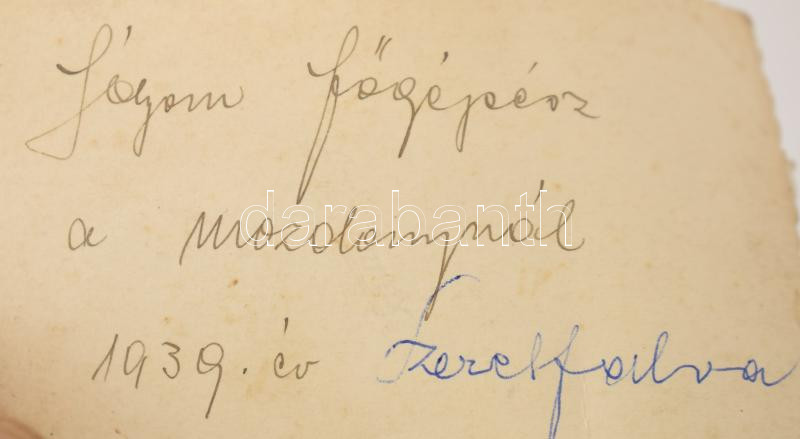 Sógom főgépész
a mozdonynál
1939. év Szeretfalva
darabanth